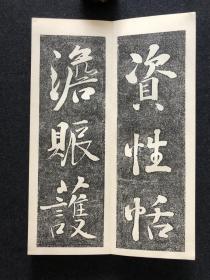 資性恬
澹賑護